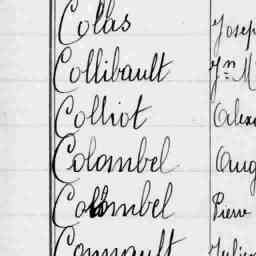 Colas Josep
Collibault Jn M
Colliot Alex
Colombel Aug
Colombel Pierre
Julien